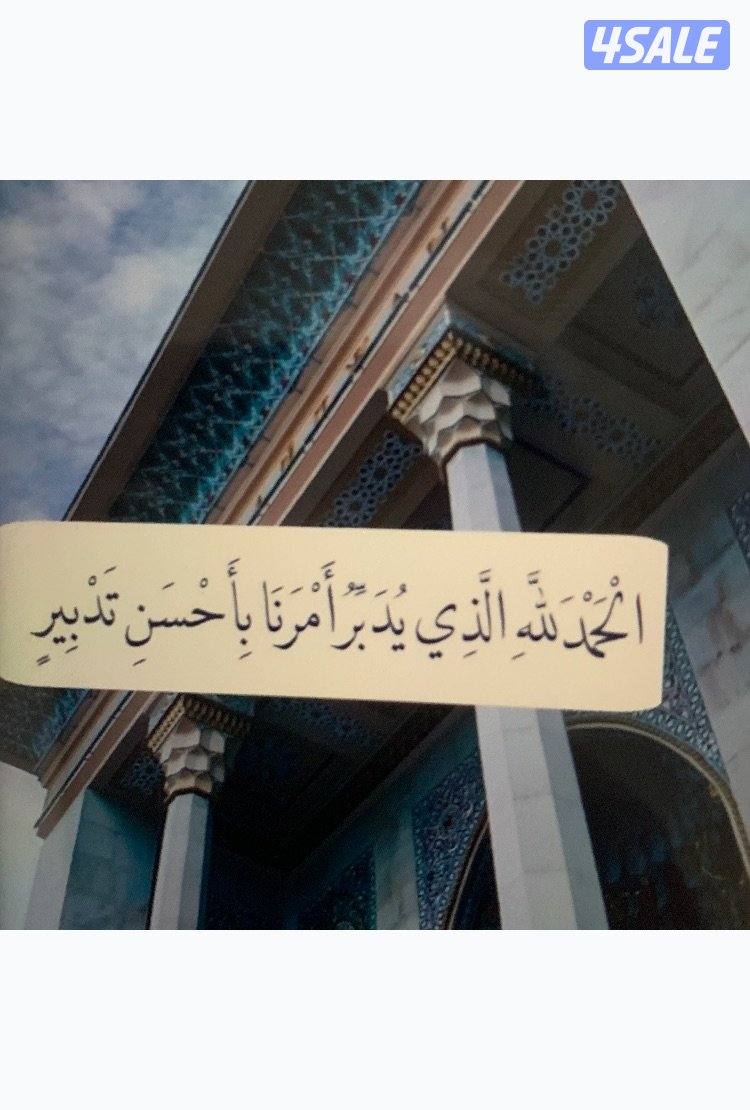 4SALE
الْحَمْدَلِلَّهِ الَّذِي يُدَبِّرُ أَمْرَنَا بِأَحْسَنِ تَدْبِيرٍ